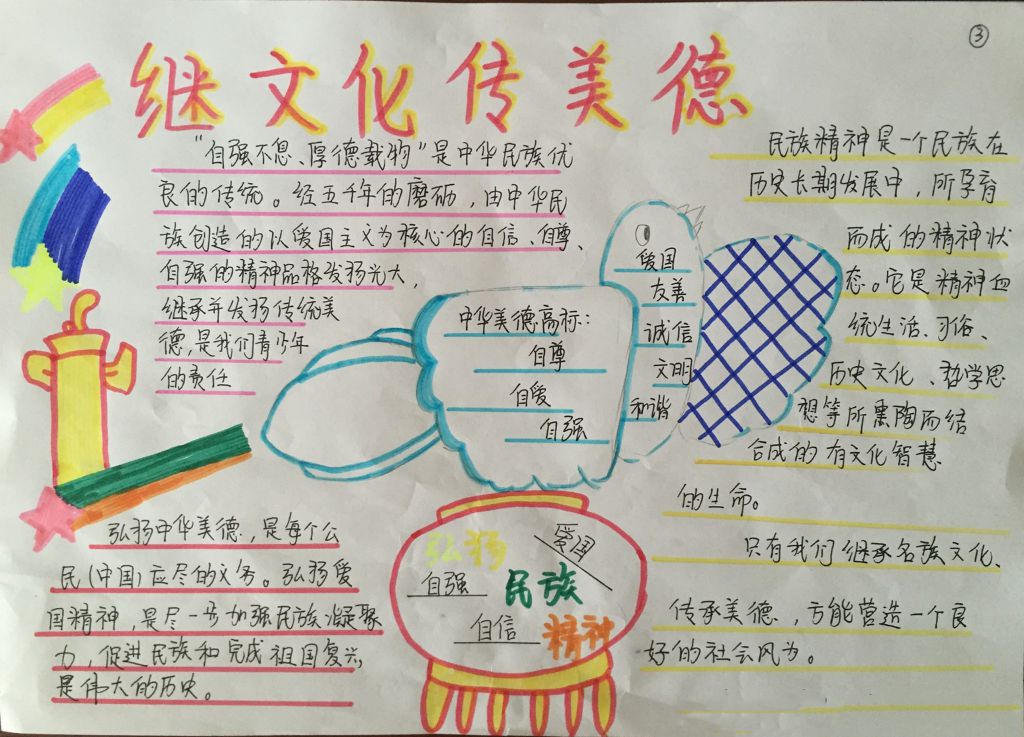 ③
继文化传美德
"自强不息、厚德载物"是中华民族优
良的传统。经五千年的磨砺,由中华民
族创造的以爱国主义为核心的自信、自尊、
自强的精神品格发扬光大,
继承并发扬传统美
德,是我们青少年
的责任
中华美德高标:
自尊
自爱
自强
爱国
友善
诚信
文明
和谐
民族精神是一个民族在
历史长期发展中,所孕育
而成的精神状
态。它是精神血
统生活、习俗、
历史文化、哲学思
想等所熏陶而结
合成的有文化智慧
的生命。
只有我们继承名族文化、
传承美德,方能营造一个良
好的社会风为。
弘扬中华美德,是每个公
民(中国)应尽的义务。弘扬爱
国精神,是尽一步加强民族凝聚
力,促进民族和完成祖国复兴,
是伟大的历史。
弘扬
爱国
自强
民族
自信
精神